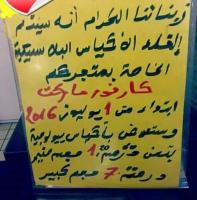 زبنائنا الكرام أنه سيتم
إلغاء الأكياس البلاستيكية
الخاصة بمتجركم
كارفور ماركت
ابتداء من 1 يوليوز 2016
وستعوض بأكياس بيولوجية
بثمن درهم 1 حجم صغير
ودرهم 7 حجم كبير